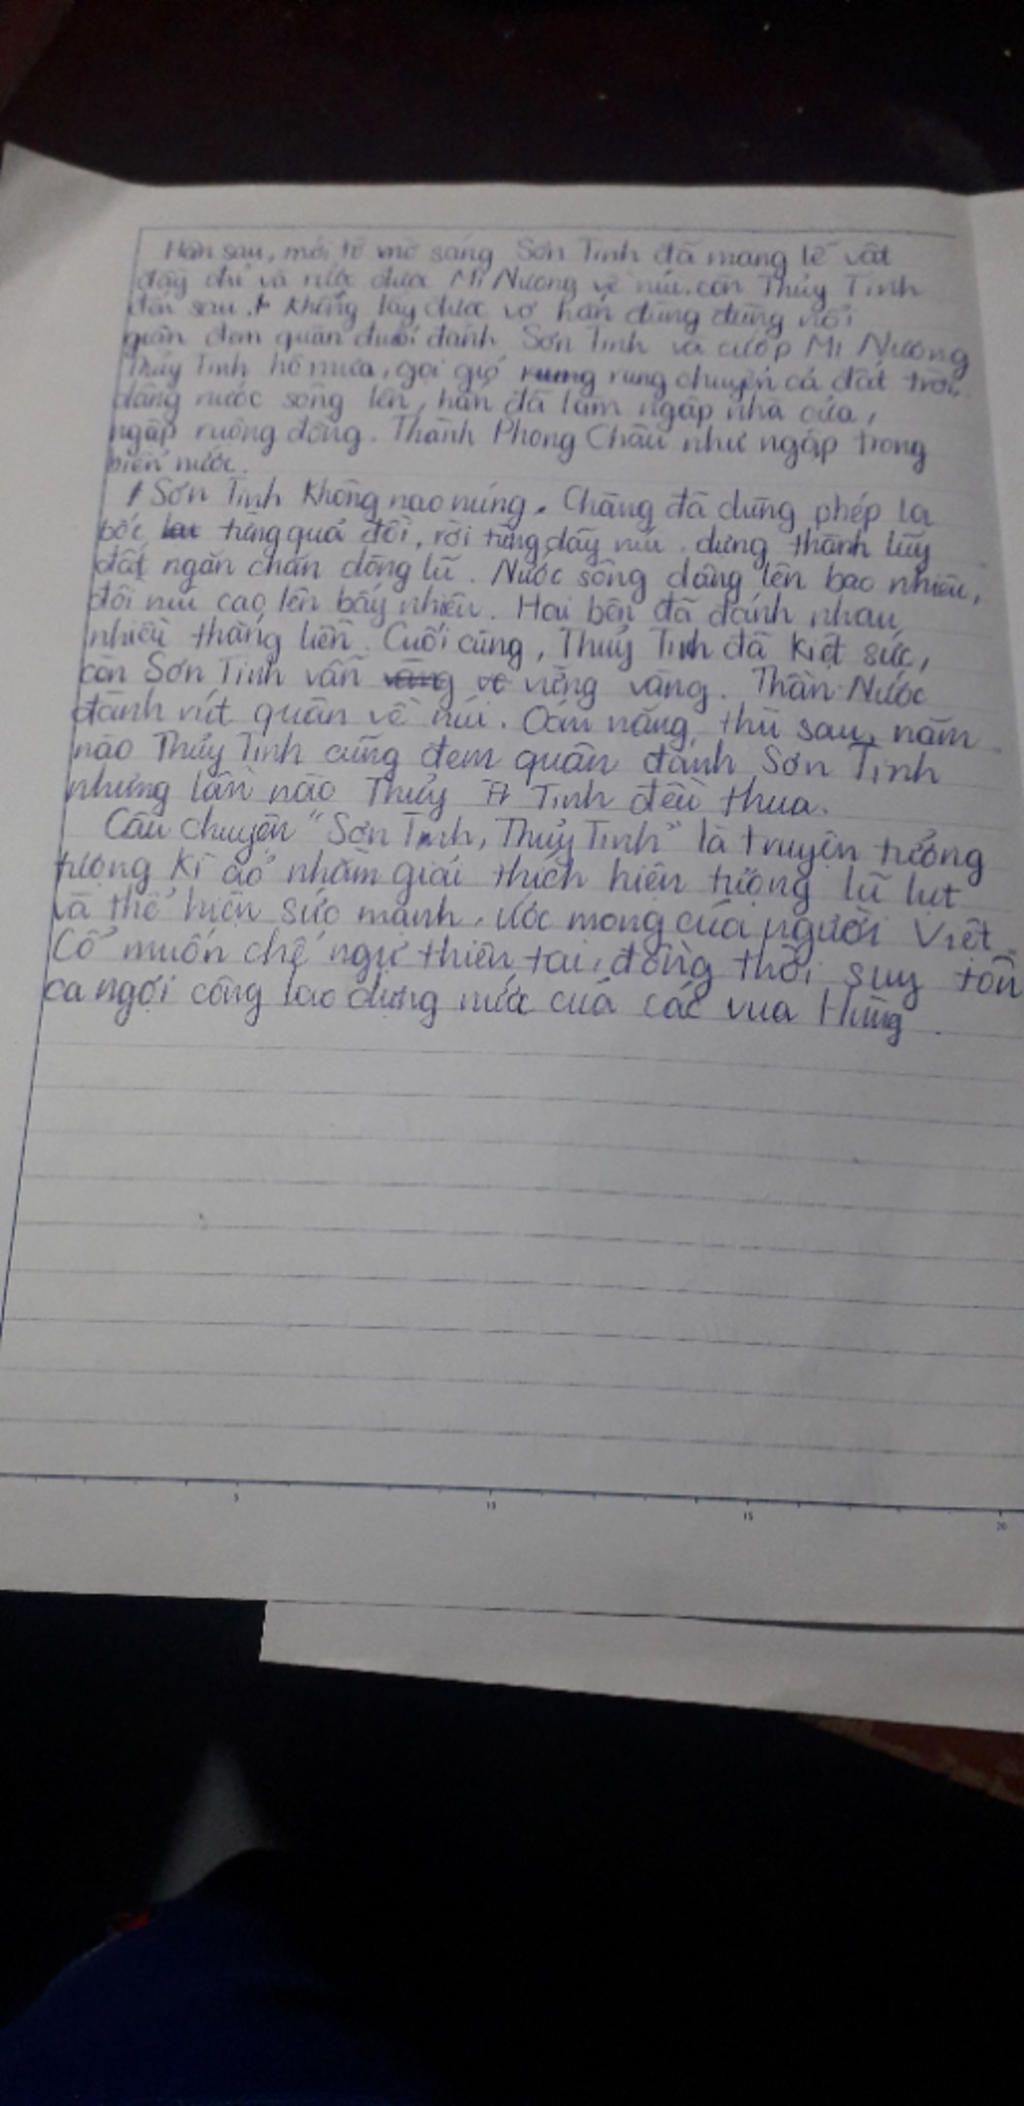 Hôm sau, mới tờ mờ sáng Sơn Tinh đã mang lễ vật
đầy đủ và rước được Mị Nương về núi. còn Thủy Tinh
đến sau. Không lấy được vợ hắn đùng đùng nổi
giận đem quân đuổi đánh Sơn Tinh và cướp Mị Nương
Thủy Tinh hô mưa, gọi gió rung rung chuyển cả đất trời.
dâng nước sông lên, hắn đã làm ngập nhà cửa,
ngập ruộng đồng. Thành Phong Châu như ngập trong
biển nước.
Sơn Tinh Không nao núng. Chàng đã dùng phép lạ
bốc từng quả đồi, rời từng dãy núi. dựng thành lũy
đất ngăn chặn dòng lũ. Nước sông dâng lên bao nhiêu,
đồi núi cao lên bấy nhiêu. Hai bên đã đánh nhau
nhiều tháng liền. Cuối cùng, Thủy Tinh đã kiệt sức,
còn Sơn Tinh vẫn vững vàng. Thần Nước
đành rút quân về núi. Oán nặng, thù sau, năm
nào Thủy Tinh cũng đem quân đánh Sơn Tinh
nhưng lần nào Thủy Tinh đều thua.
Câu chuyện "Sơn Tinh, Thủy Tinh" là truyện tưởng
tượng kì ảo nhằm giải thích hiện tượng lũ lụt
và thể hiện sức mạnh, ước mong của người Việt
Cổ muốn chế ngự thiên tai, đồng thời suy tôn
ca ngợi công lao dựng nước của các vua Hùng.
5
10
15
20